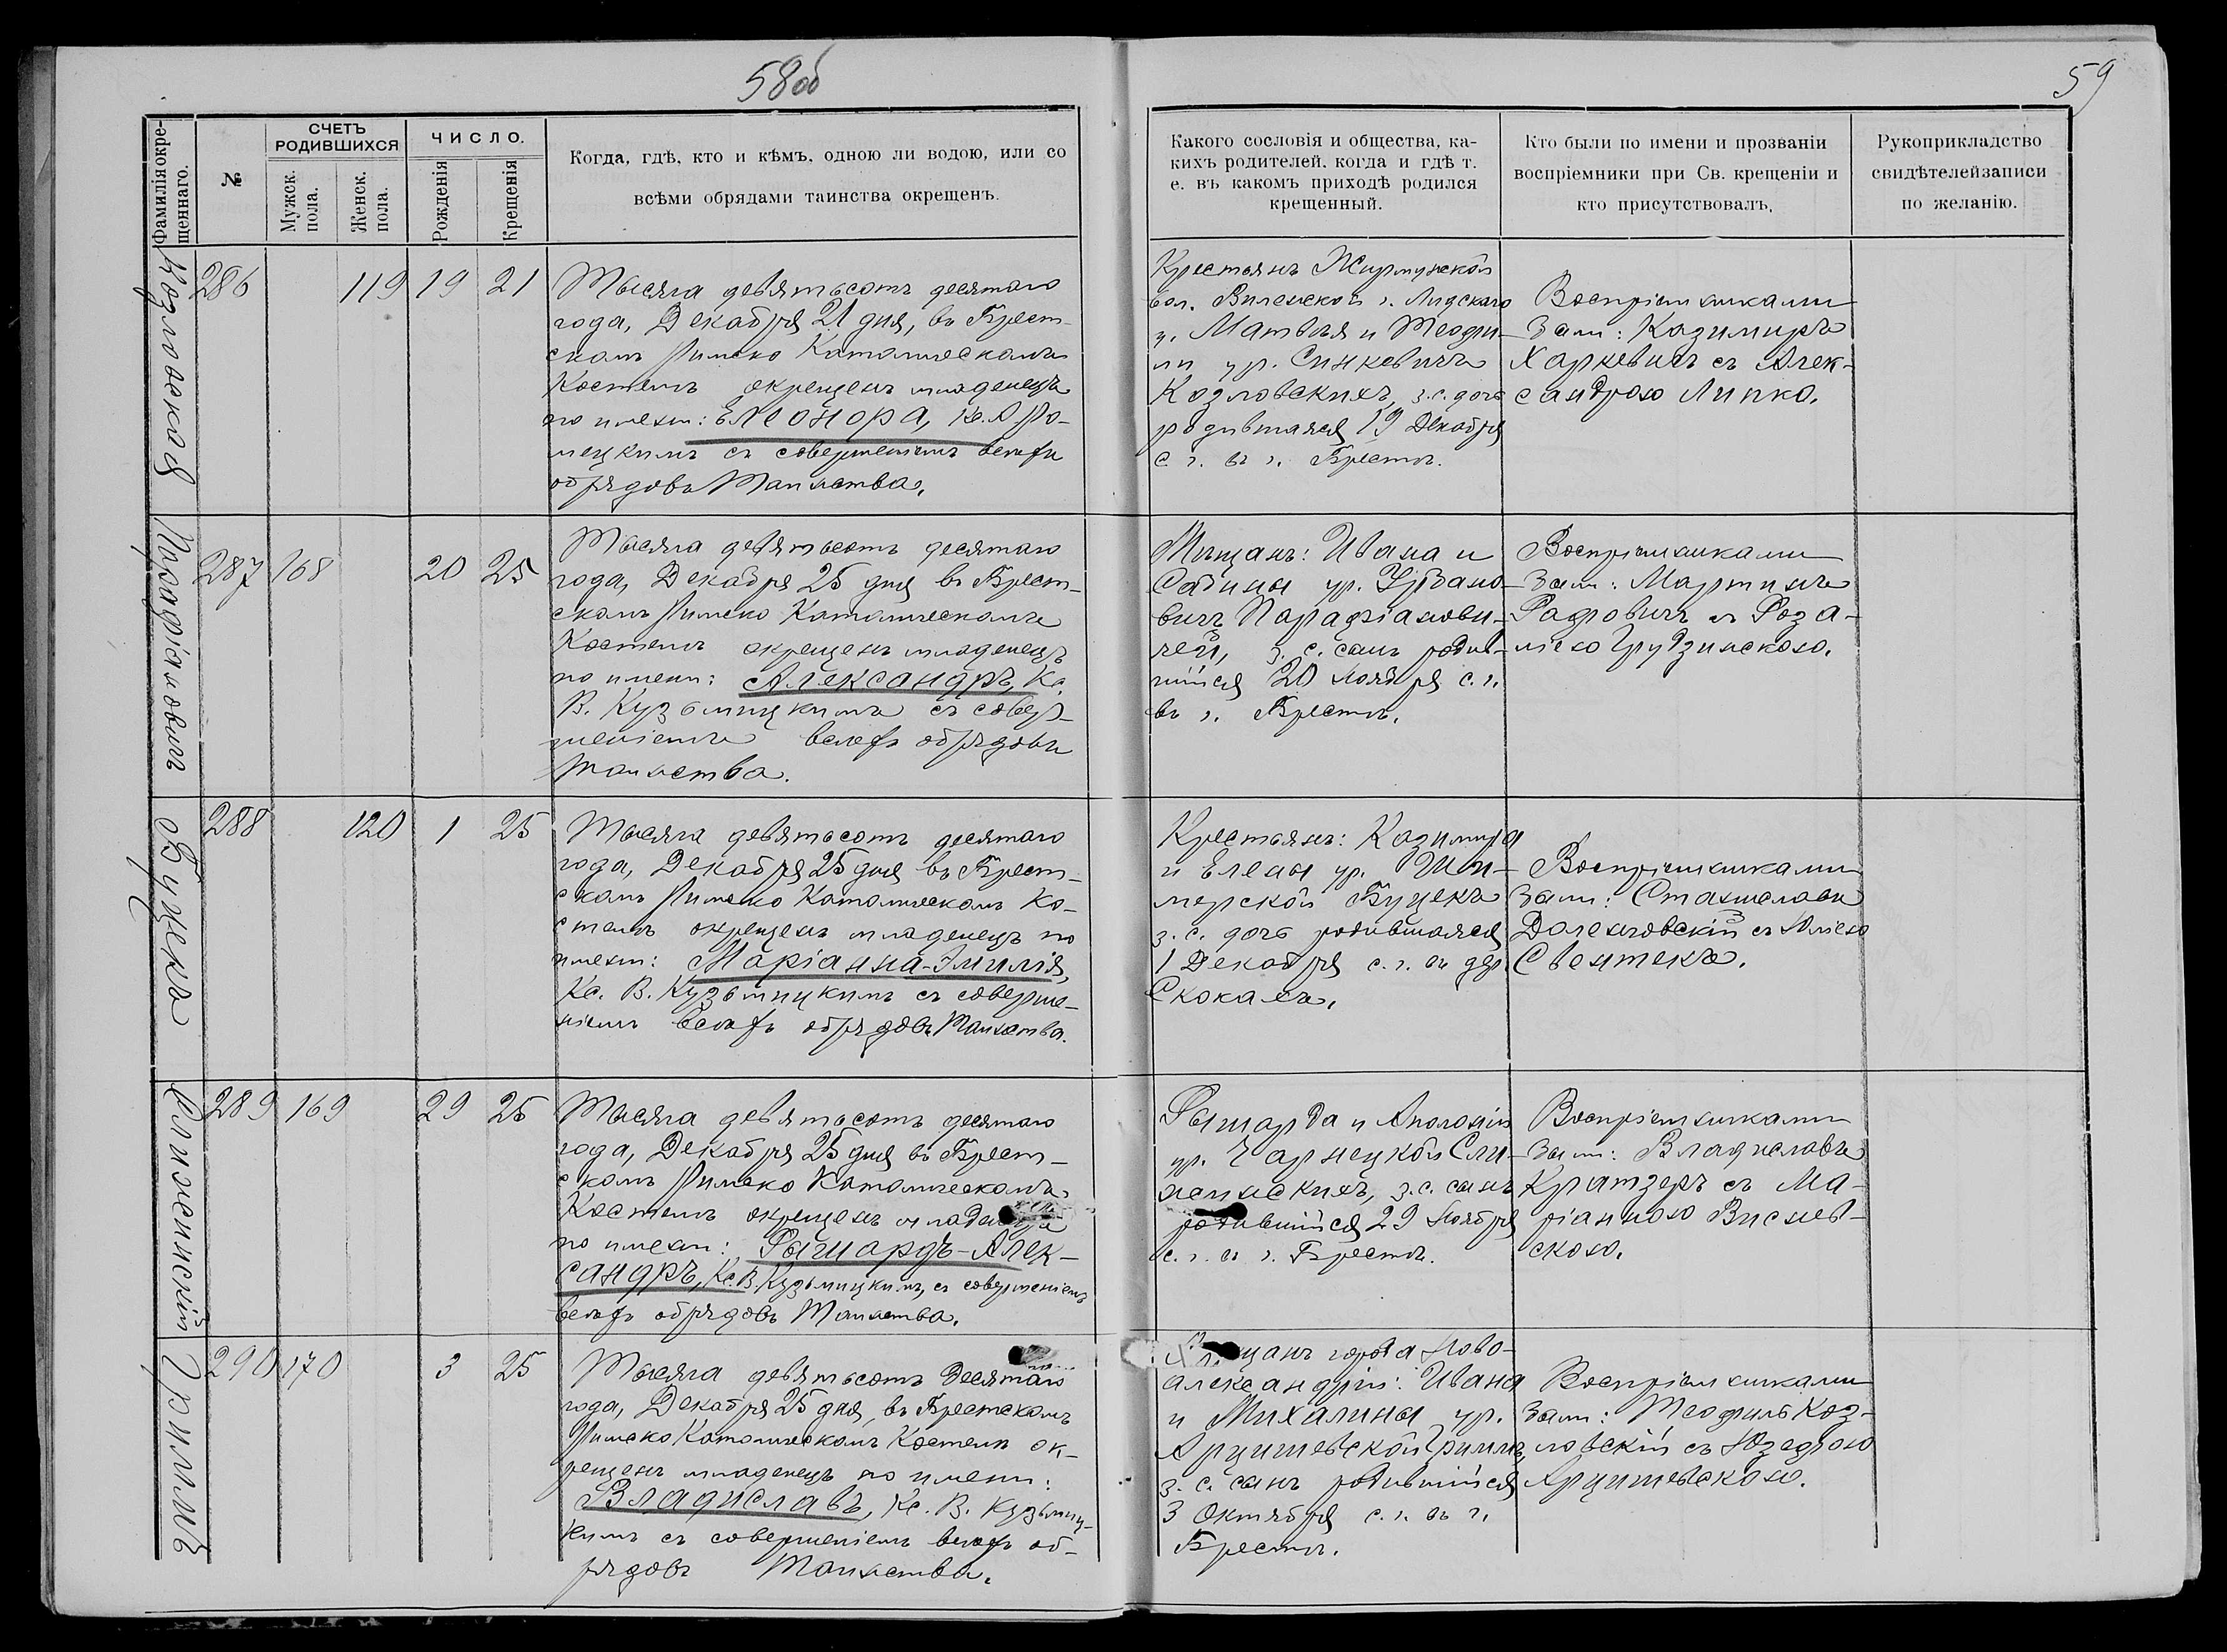 58об
59
Фамилія окре-
щеннаго.
№
СЧЕТЪ
РОДИВШИХСЯ
Мужск.
пола.
Женск.
пола.
ЧИСЛО.
Рожденія
Крещенія
Когда, гдѣ, кто и кѣмъ, одною ли водою, или со
всѣми обрядами таинства окрещенъ.
Какого сословія и общества, ка-
кихъ родителей, когда и гдѣ т.
е. въ какомъ приходѣ родился
крещенный.
Кто были по имени и прозванію
воспріемники при Св. крещеніи и
кто присутствовалъ,
Рукоприкладство
свидѣтелей записи
по желанію.
Козловская
286 119 19 21
Тысяча девятьсотъ десятаго
года, Декабря 21 дня, въ Брест-
скомъ Римско Католическомъ
Костелѣ окрещенъ младенецъ
по имени: Елеонора, Кс. А. Ро-
мецкимъ съ совершеніемъ всѣхъ
обрядовъ Таинства.
Крестьянъ Жирмунской
вол. Виленской г. Лидскаго
у. Матвѣя и Теофи-
ли ур. Синкевичъ
Козловскихъ, з. с. дочь
родившаяся 19 Декабря
с. г. въ г. Брестѣ.
Воспріемниками
были: Казимиръ
Харкевичъ съ Алек-
сандрою Липко.
Парафіановичъ
287 168 20 25
Тысяча девятьсотъ десятаго
года, Декабря 25 дня въ Брест-
скомъ Римско Католическомъ
Костелѣ окрещенъ младенецъ
по имени: Александръ, Кс.
В. Кузьмицкимъ съ совер-
шеніемъ всѣхъ обрядовъ
Таинства.
Мѣщанъ: Ивана и
Сабины ур. Урбано-
вичъ Парафіанови-
чей, з. с. сынъ родив-
шійся 20 Ноября с. г.
въ г. Брестѣ.
Воспріемниками
были: Мартинъ
Радовичъ съ Роза-
ліею Грудзинскою.
Буцекъ
288 120 1 25
Тысяча девятьсотъ десятаго
года, Декабря 25 дня въ Брест-
скомъ Римско Католическомъ Ко-
стелѣ окрещенъ младенецъ по
имени: Маріанна-Эмилія,
Кс. В. Кузьмицкимъ съ соверше-
ніемъ всѣхъ обрядовъ Таинства.
Крестьянъ: Казимира
и Елены ур.
мерской Буцекъ
з. с. дочь родившаяся
1 Декабря с. г. въ дер.
Скокахъ.
Воспріемниками
были: Станиславъ
Доленговскій съ Аліею
Свентекъ.
Слижинскій
289 169 29 25
Тысяча девятьсотъ десятаго
года, Декабря 25 дня въ Брест-
скомъ Римско Католическомъ
Костелѣ окрещенъ младенецъ
по имени: Рышардъ-Алек-
сандръ, Кс. В. Кузьмицкимъ, съ совершеніемъ
всѣхъ обрядовъ Таинства.
Рышарда и Аполоніи
ур. Чарнецкой Сли-
жинскихъ, з. с. сынъ
родившійся 29 Ноября
с. г. въ г. Брестѣ.
Воспріемниками
были: Владиславъ
Кратзеръ съ Ма-
ріанною Виснев-
скою.
Гриммъ
290 170 3 25
Тысяча девятьсотъ десятаго
года, Декабря 25 дня, въ Брестскомъ
Римско Католическомъ Костелѣ ок-
рещенъ младенецъ по имени:
Владиславъ, Кс. В. Кузьмиц-
кимъ съ совершеніемъ всѣхъ об-
рядовъ Таинства.
Мѣщанъ города Ново-
александріи: Ивана
и Михалины ур.
Арцишевской Гриммъ,
з. с. сынъ родившійся
3 Октября с. г. въ г.
Брестѣ.
Воспріемниками
были: Теофиль Коз-
ловскій съ Юзефою
Арцишевскою.